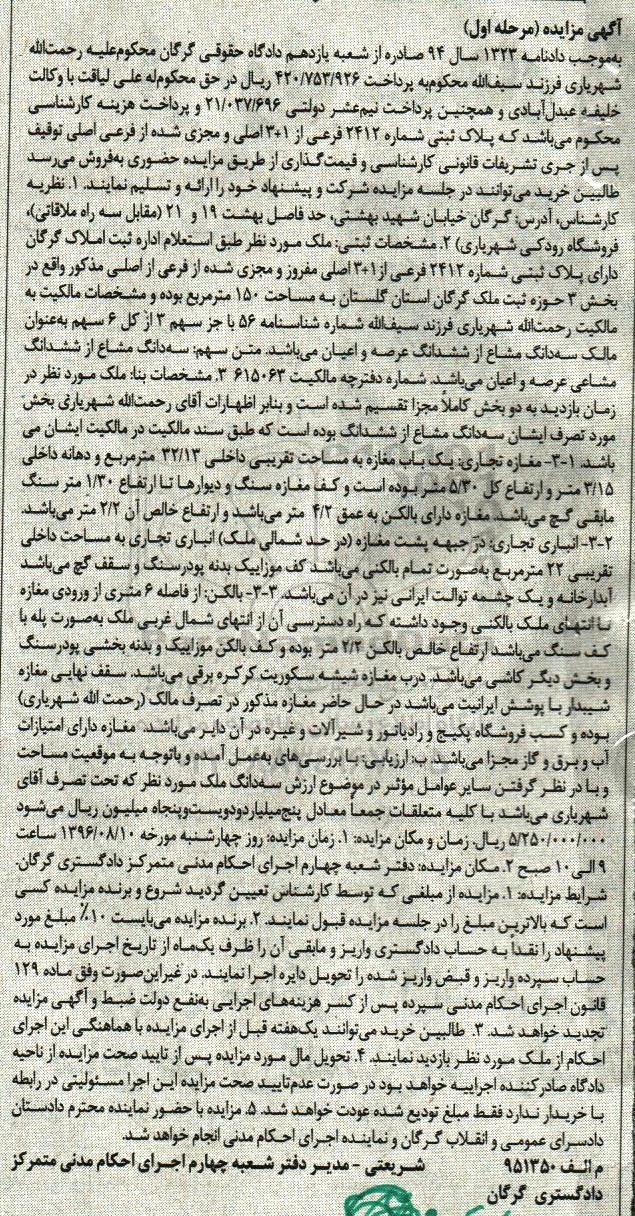 آگهی مزایده (مرحله اول)
به‌موجب دادنامه ۱۳۲۳ سال ۹۴ صادره از شعبه یازدهم دادگاه حقوقی گرگان محکوم‌علیه رحمت‌الله
شهریاری فرزند سیف‌الله محکوم‌به پرداخت ۴۲۰/۷۵۳/۹۲۶ ریال در حق محکوم‌له علی لیاقت با وکالت
خلیفه عبدل‌آبادی و همچنین پرداخت نیم‌عشر دولتی ۲۱/۰۳۷/۶۹۶ و پرداخت هزینه کارشناسی
محکوم می‌باشد که پلاک ثبتی شماره ۲۴۱۲ فرعی از ۳۰۱ اصلی و مجزی شده از فرعی اصلی توقیف
پس از جری تشریفات قانونی کارشناسی و قیمت‌گذاری از طریق مزایده حضوری به‌فروش می‌رسد
طالبین خرید می‌توانند در جلسه مزایده شرکت و پیشنهاد خود را ارائه و تسلیم نمایند. ۱. نظریه
کارشناس، آدرس: گرگان خیابان شهید بهشتی، حد فاصل بهشت ۱۹ و ۲۱ (مقابل سه راه ملاقاتی)،
فروشگاه رودکی شهریاری) ۲. مشخصات ثبتی: ملک مورد نظر طبق استعلام اداره ثبت املاک گرگان
دارای پلاک ثبتی شماره ۲۴۱۲ فرعی از ۳۰۱ اصلی مفروز و مجزی شده از فرعی از اصلی مذکور واقع در
بخش ۳ حوزه ثبت ملک گرگان استان گلستان به مساحت ۱۵۰ مترمربع بوده و مشخصات مالکیت به
مالکیت رحمت‌الله شهریاری فرزند سیف‌الله شماره شناسنامه ۵۶ با جز سهم ۳ از کل ۶ سهم به‌عنوان
مالک سه‌دانگ مشاع از ششدانگ عرصه و اعیان می‌باشد. متن سهم: سه‌دانگ مشاع از ششدانگ
مشاعی عرصه و اعیان می‌باشد. شماره دفترچه مالکیت ۶۱۵۰۶۳ ۳. مشخصات بنا: ملک مورد نظر در
زمان بازدید به دو بخش کاملاً مجزا تقسیم شده است و بنابر اظهارات آقای رحمت‌الله شهریاری بخش
مورد تصرف ایشان سه‌دانگ مشاع از ششدانگ بوده است که طبق سند مالکیت در مالکیت ایشان می
باشد. ۱-۳- مغازه تجاری: یک باب مغازه به مساحت تقریبی داخلی ۳۲/۱۳ مترمربع و دهانه داخلی
۳/۱۵ متر و ارتفاع کل ۵/۳۰ متر بوده است و کف مغازه سنگ و دیوارها تا ارتفاع ۱/۳۰ متر سنگ
مابقی گچ می‌باشد. مغازه دارای بالکن به عمق ۴/۲ متر می‌باشد و ارتفاع خالص آن ۲/۲ متر می‌باشد.
۲-۳- انباری تجاری: در جبهه پشت مغازه (در حد شمالی ملک) انباری تجاری به مساحت داخلی
تقریبی ۲۲ مترمربع به‌صورت تمام بالکنی می‌باشد کف موزاییک بدنه پودرسنگ و سقف گچ می‌باشد
آبدارخانه و یک چشمه توالت ایرانی نیز در آن می‌باشد. ۳-۳- بالکن: از فاصله ۶ متری از ورودی مغازه
تا انتهای ملک بالکنی وجود داشته که راه دسترسی آن از انتهای شمال غربی ملک به‌صورت پله با
کف سنگ می‌باشد ارتفاع خالص بالکن ۲/۲ متر بوده و کف بالکن موزاییک و بدنه بخشی پودرسنگ
و بخش دیگر کاشی می‌باشد. درب مغازه شیشه سکوریت کرکره برقی می‌باشد. سقف نهایی مغازه
شیبدار با پوشش ایرانیت می‌باشد در حال حاضر مغازه مذکور در تصرف مالک (رحمت الله شهریاری)
بوده و کسب فروشگاه پکیج و رادیاتور و شیرآلات و غیره در آن دایر می‌باشد. مغازه دارای امتیازات
آب و برق و گاز مجزا می‌باشد. ب: ارزیابی: با بررسی‌های به‌عمل آمده و باتوجه به موقعیت مساحت
و با در نظر گرفتن سایر عوامل مؤثر در موضوع ارزش سه‌دانگ ملک مورد نظر که تحت تصرف آقای
شهریاری می‌باشد با کلیه متعلقات جمعاً معادل پنج‌میلیاردودویست‌وپنجاه میلیون ریال می‌شود
۵/۲۵۰/۰۰۰/۰۰۰ ریال. زمان و مکان مزایده: ۱. زمان مزایده: روز چهارشنبه مورخه ۱۳۹۶/۰۸/۱۰ ساعت
۹ الی ۱۰ صبح ۲. مکان مزایده: دفتر شعبه چهارم اجرای احکام مدنی متمرکز دادگستری گرگان.
شرایط مزایده: ۱. مزایده از مبلغی که توسط کارشناس تعیین گردید شروع و برنده مزایده کسی
است که بالاترین مبلغ را در جلسه مزایده قبول نمایند. ۲. برنده مزایده می‌بایست ۱۰٪ مبلغ مورد
پیشنهاد را نقداً به حساب دادگستری واریز و مابقی آن را ظرف یک‌ماه از تاریخ اجرای مزایده به
حساب سپرده واریز و قبض واریز شده را تحویل دایره اجرا نمایند. در غیراین‌صورت وفق ماده ۱۲۹
قانون اجرای احکام مدنی سپرده پس از کسر هزینه‌های اجرایی به‌نفع دولت ضبط و آگهی مزایده
تجدید خواهد شد. ۳. طالبین خرید می‌توانند یک‌هفته قبل از اجرای مزایده با هماهنگی این اجرای
احکام از ملک مورد نظر بازدید نمایند. ۴. تحویل مال مورد مزایده پس از تایید صحت مزایده از ناحیه
دادگاه صادرکننده اجراییه خواهد بود در صورت عدم‌تایید صحت مزایده این اجرا مسئولیتی در رابطه
با خریدار ندارد فقط مبلغ تودیع شده عودت خواهد شد. ۵. مزایده با حضور نماینده محترم دادستان
دادسرای عمومی و انقلاب گرگان و نماینده اجرای احکام مدنی انجام خواهد شد.
م الف ۹۵۱۳۵۰ شریعتی - مدیر دفتر شعبه چهارم اجرای احکام مدنی متمرکز
دادگستری گرگان